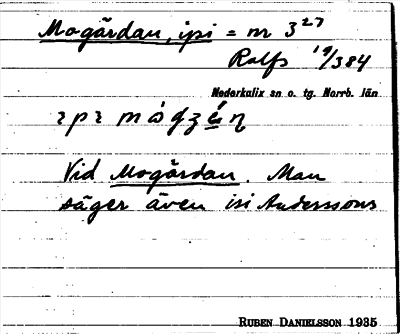 Mogårdan, ipi = nr 3²⁷
Rolfs ¹⁹/384
Nederkalix sn o. tg. Norrb. län
Vid Mogårdan. Man
säger även isi Anderssons
RUBEN DANIELSSON 1935